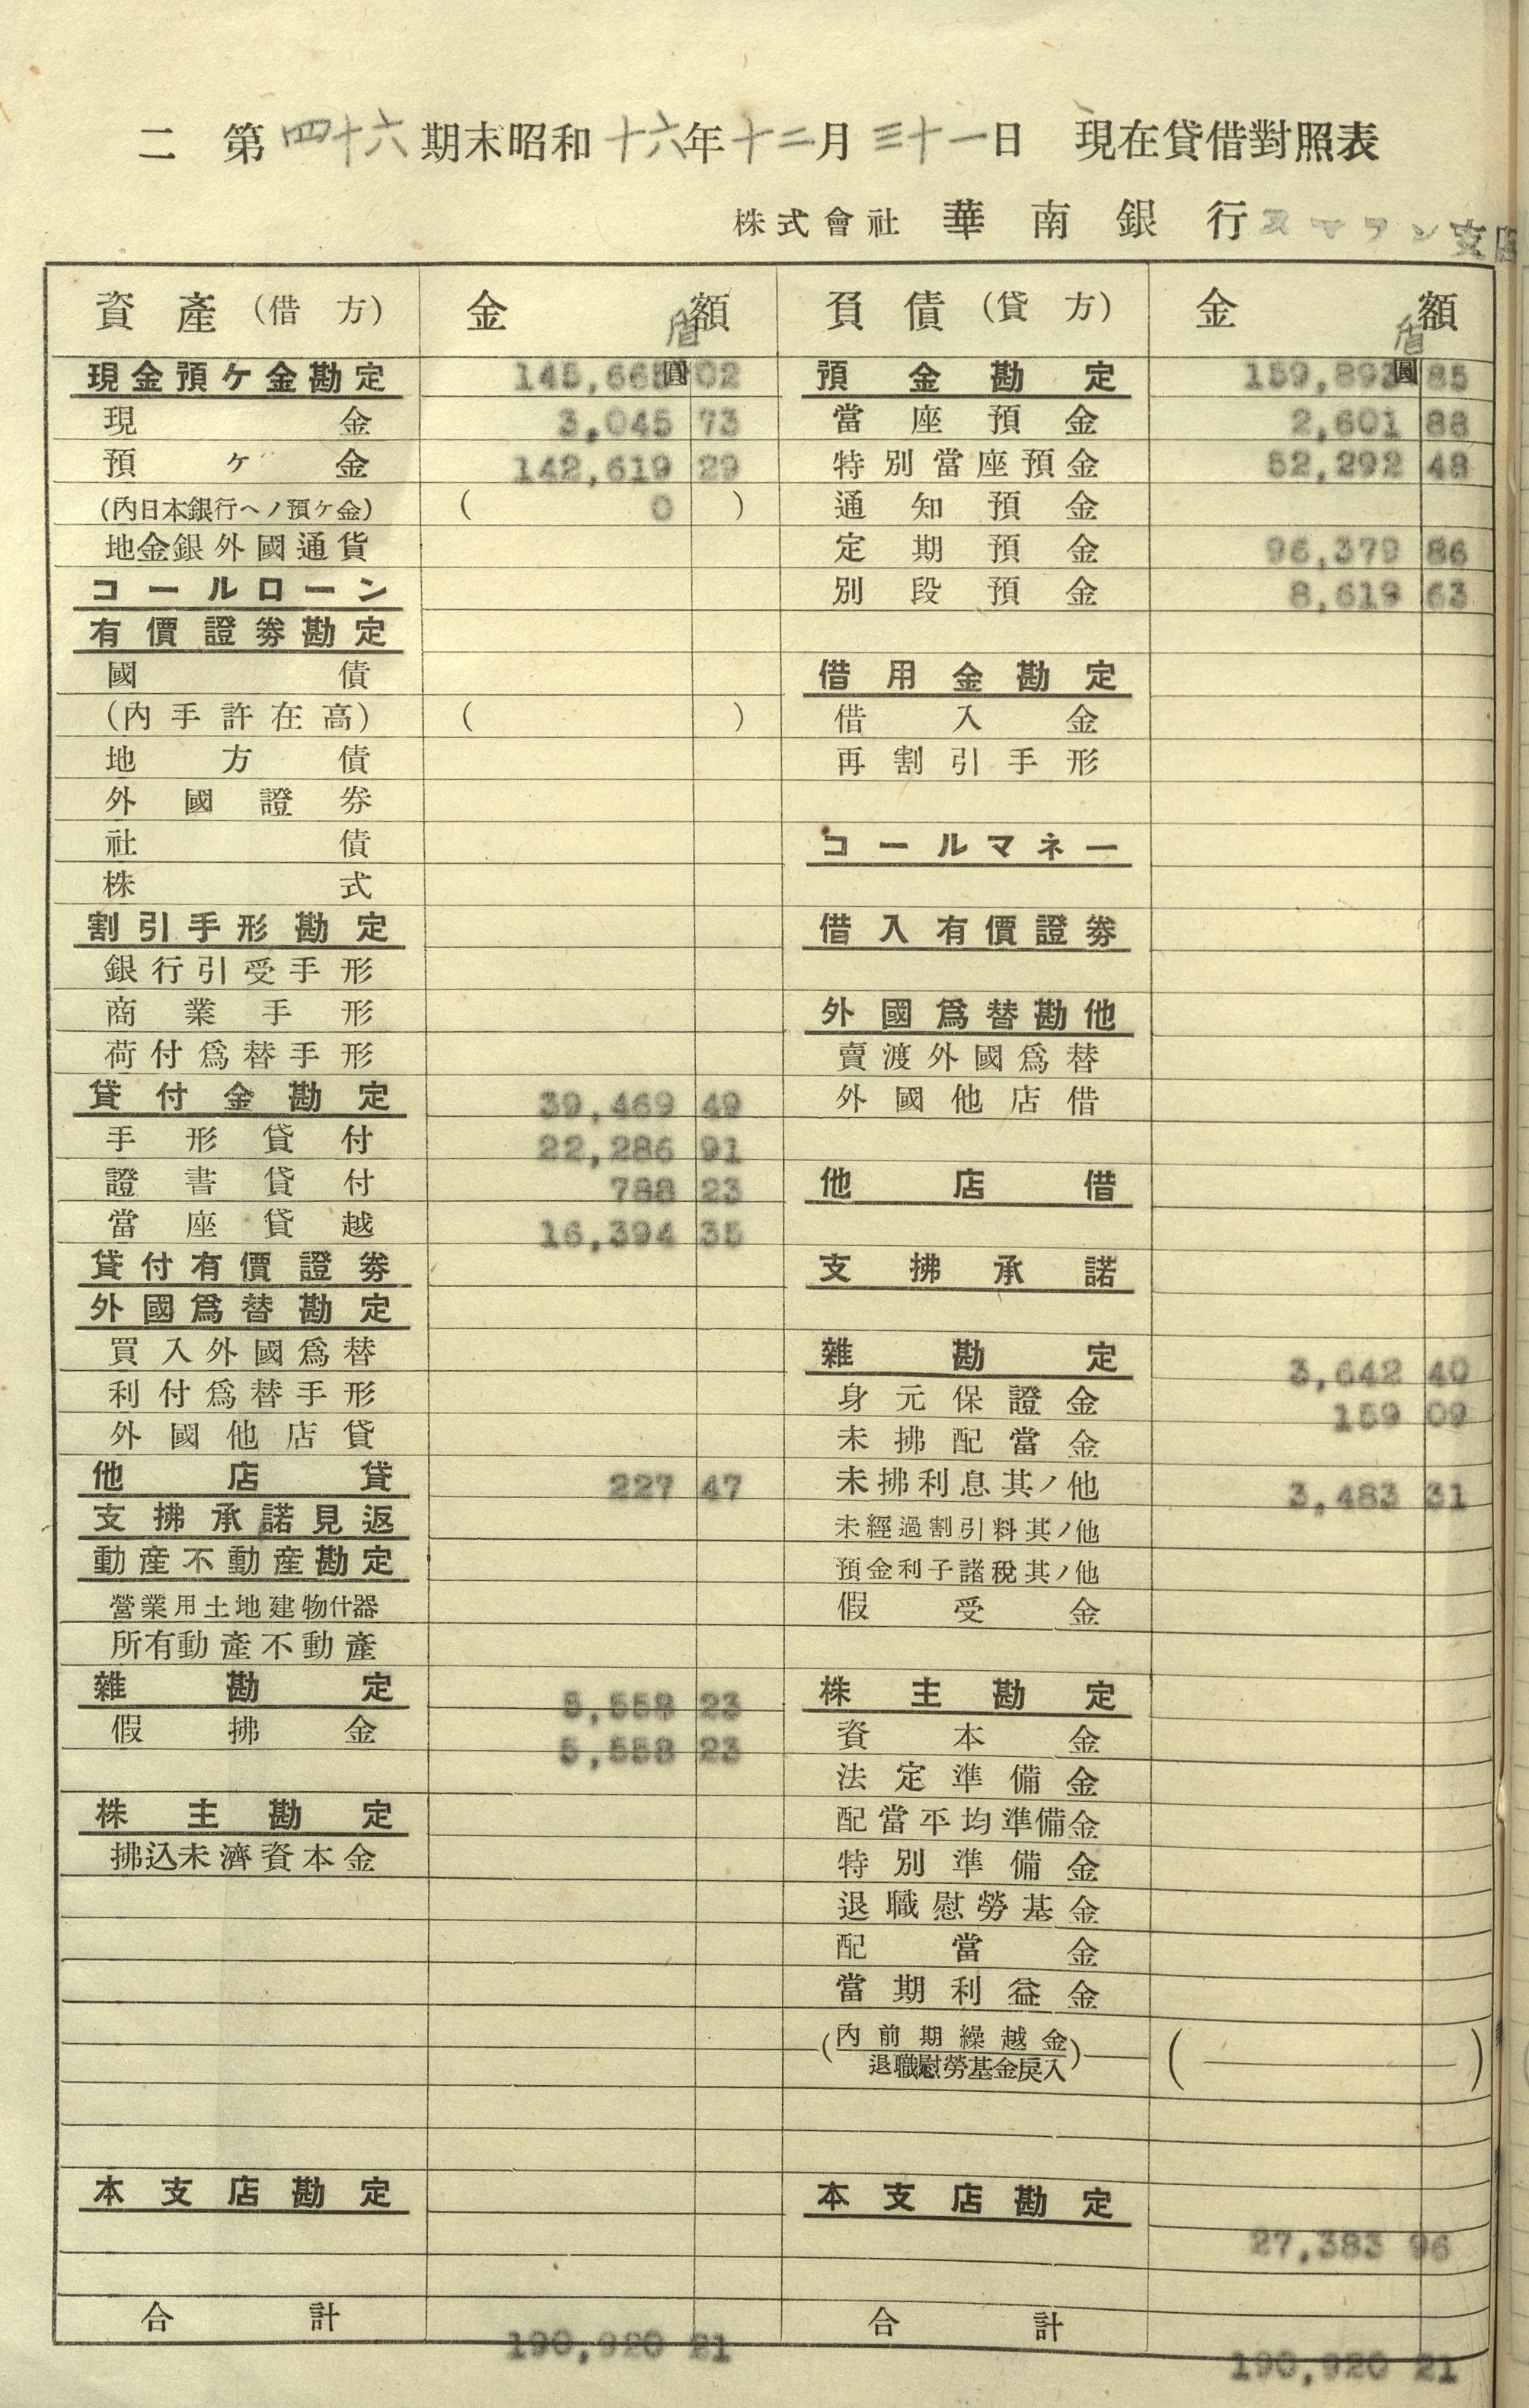 二 第四十六期末昭和十六年十二月三十一日 現在貸借對照表
株式會社 華南銀行スマラン支店
資產(借方) 金額 負債(貸方) 金額
盾 盾
圓 圓
現金預ケ金勘定 145,665 02 預金勘定 159,893 85
現金 3,045 73 當座預金 2,601 88
預ケ金 142,619 29 特別當座預金 52,292 48
(內日本銀行ヘノ預ケ金) ( 0 ) 通知預金
地金銀外國通貨 定期預金 96,379 86
コールローン 別段預金 8,619 63
有價證劵勘定
國債 借用金勘定
(內手許在高) ( ) 借入金
地方債 再割引手形
外國證券
社債 コールマネー
株式
割引手形勘定 借入有價證劵
銀行引受手形
商業手形 外國爲替勘他
荷付爲替手形 賣渡外國爲替
貸付金勘定 39,469 49 外國他店借
手形貸付 22,286 91
證書貸付 788 23 他店借
當座貸越 16,394 35
貸付有價證劵 支拂承諾
外國爲替勘定
買入外國爲替 雜勘定 3,642 40
利付爲替手形 身元保證金 159 09
外國他店貸 未拂配當金
他店貸 227 47 未拂利息其ノ他 3,483 31
支拂承諾見返 未經過割引料其ノ他
動產不動產勘定 預金利子諸稅其ノ他
營業用土地建物什器 假受金
所有動產不動產
雜勘定 5,558 23 株主勘定
假拂金 5,558 23 資本金
法定準備金
株主勘定 配當平均準備金
拂込未濟資本金 特別準備金
退職慰勞基金
配當金
當期利益金
(內前期繰越金 ( )
退職慰勞基金戾入)
本支店勘定 本支店勘定 27,383 96
合計 190,920 21 合計 190,920 21